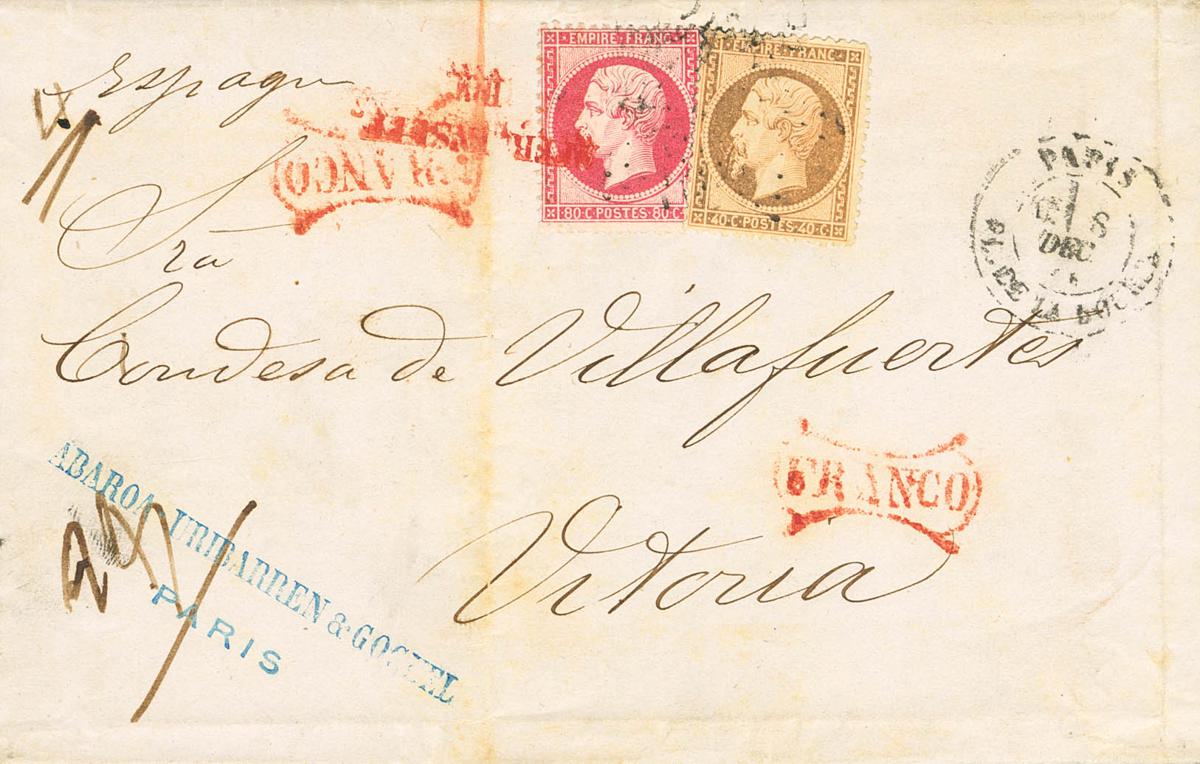 Espagne
EMPIRE FRANC
80 C POSTES 80 C
EMPIRE FRANC
40 C POSTES 40 C
FRANCO
PARIS
8
DEC
PL. DE LA BOURSE
Sra
Condesa de Villafuertes
FRANCO
Vitoria
ABAROA URIBARREN & GOGUEL
PARIS